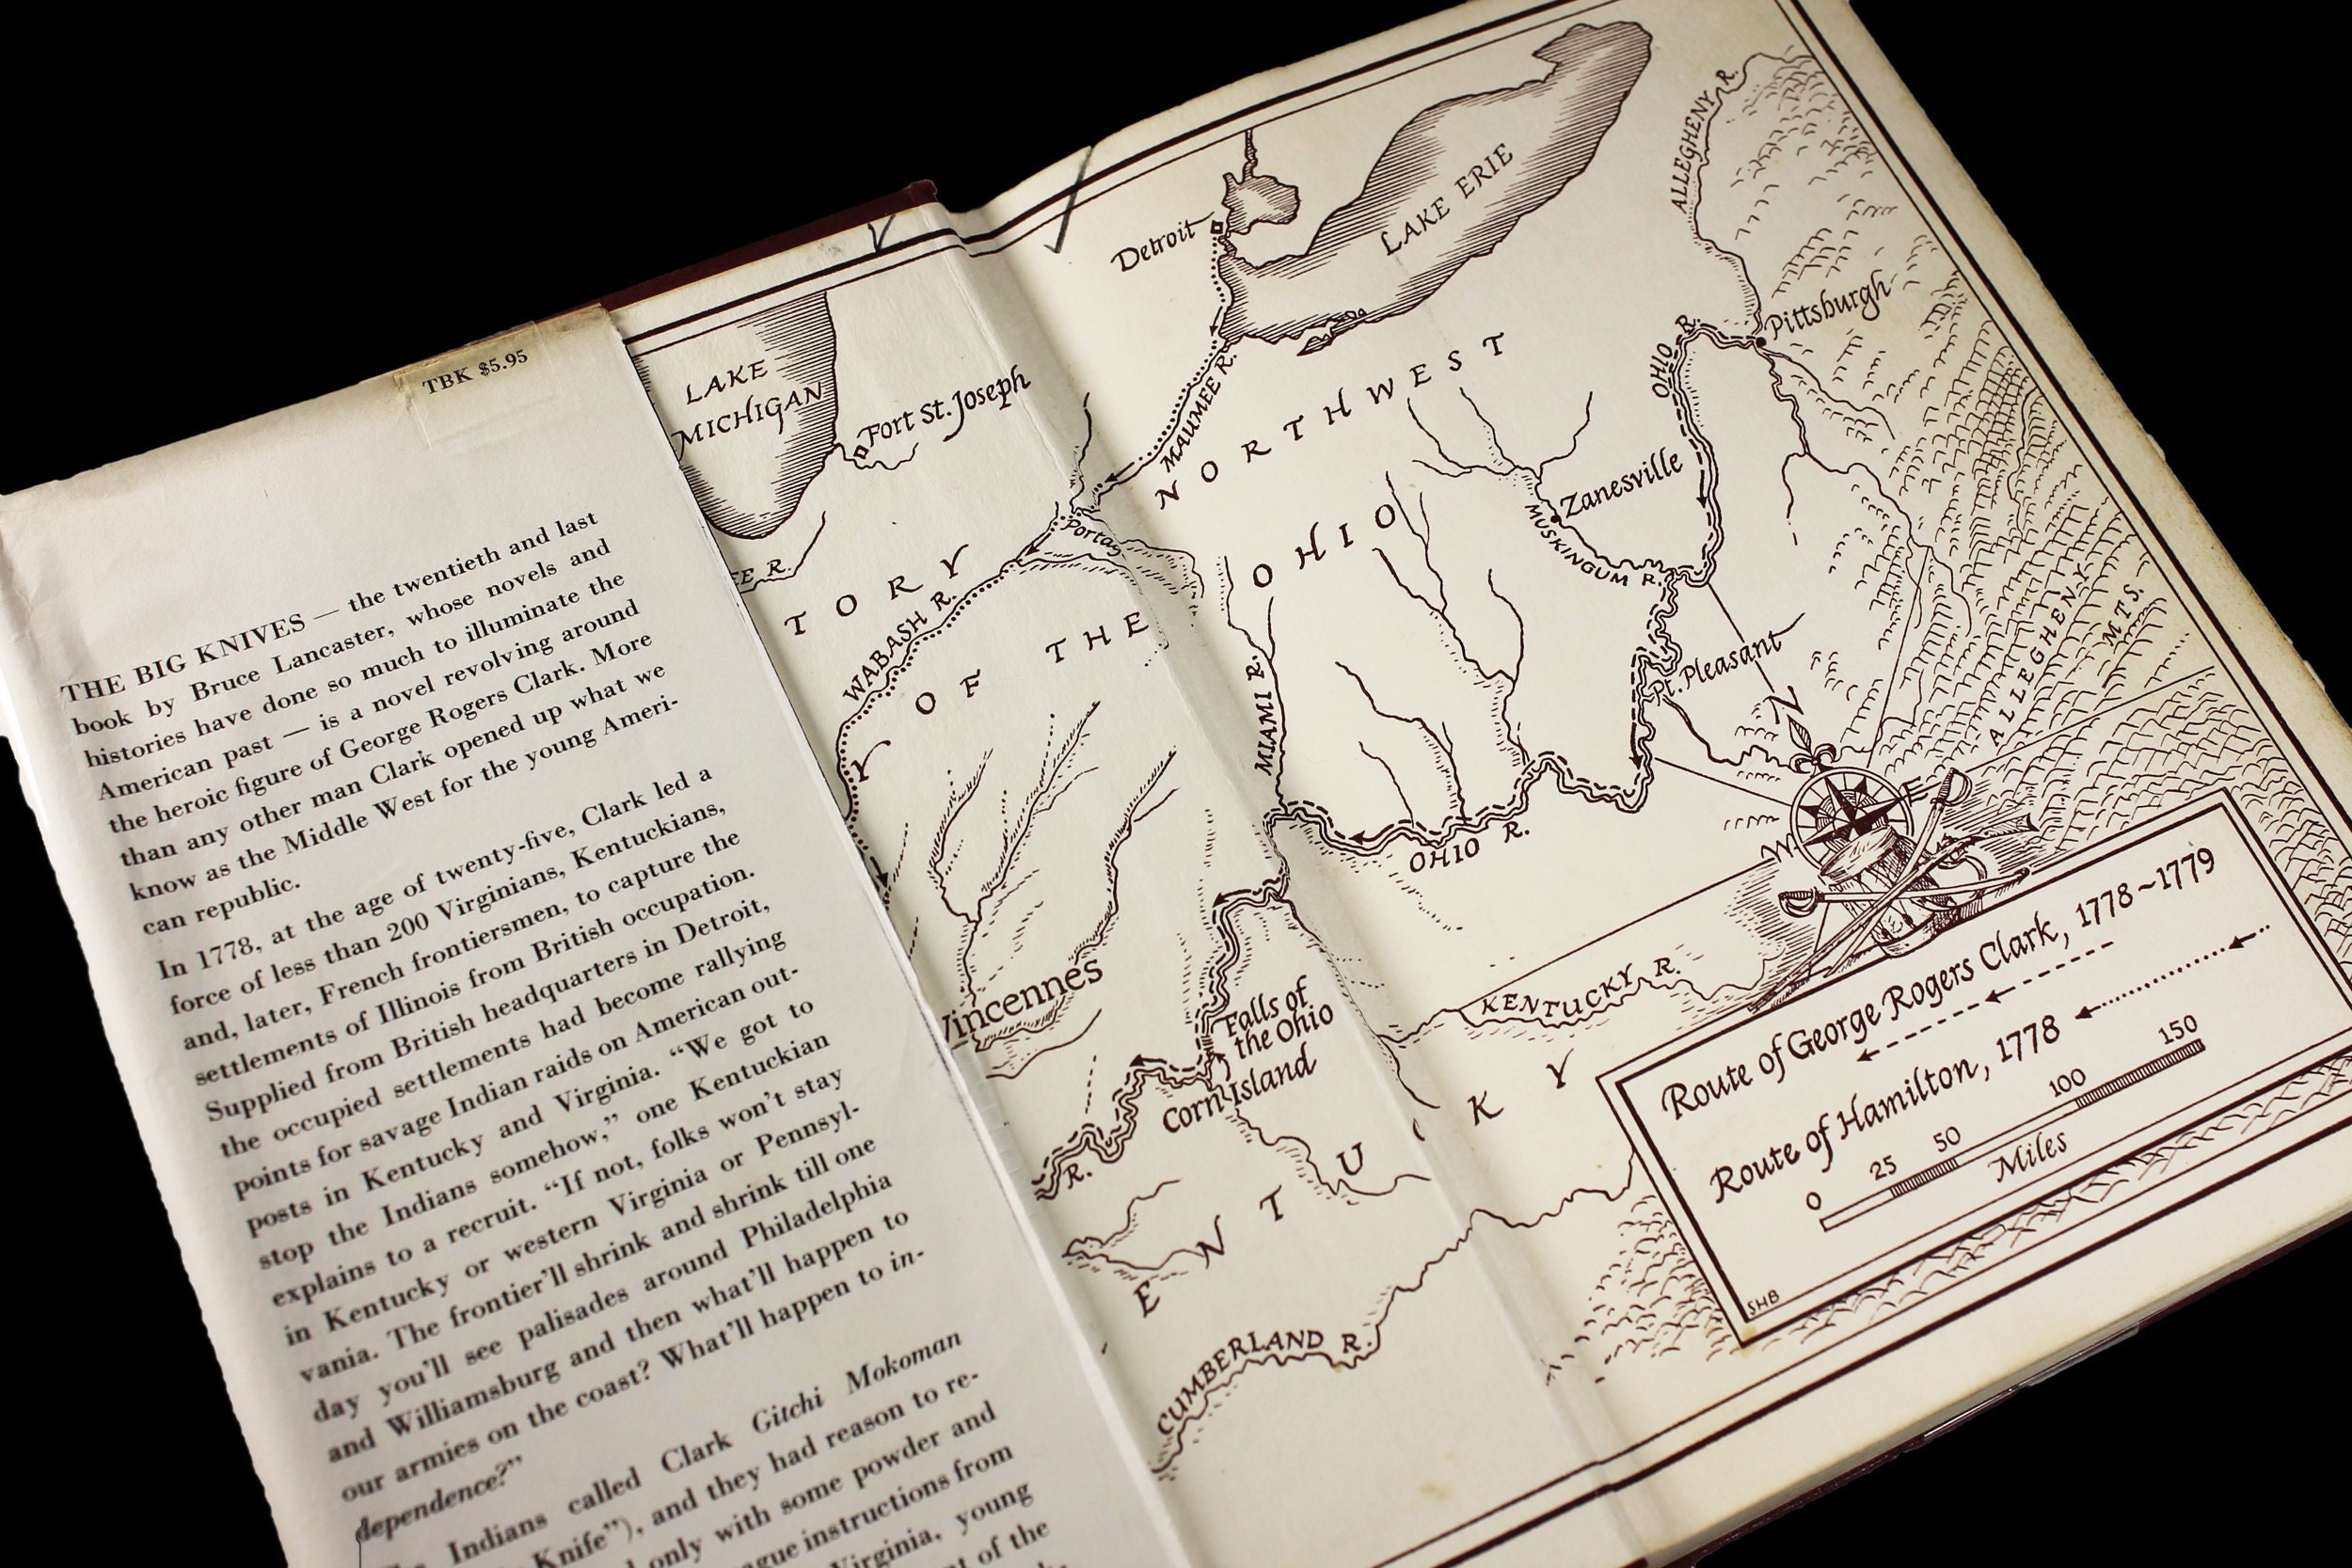 TBK $5.95
THE BIG KNIVES — the twentieth and last
book by Bruce Lancaster, whose novels and
histories have done so much to illuminate the
American past — is a novel revolving around
the heroic figure of George Rogers Clark. More
than any other man Clark opened up what we
know as the Middle West for the young Ameri-
can republic.
In 1778, at the age of twenty-five, Clark led a
force of less than 200 Virginians, Kentuckians,
and, later, French frontiersmen, to capture the
settlements of Illinois from British occupation.
Supplied from British headquarters in Detroit,
the occupied settlements had become rallying
points for savage Indian raids on American out-
posts in Kentucky and Virginia. “We got to
stop the Indians somehow,” one Kentuckian
explains to a recruit. “If not, folks won’t stay
in Kentucky or western Virginia or Pennsyl-
vania. The frontier’ll shrink and shrink till one
day you’ll see palisades around Philadelphia
and Williamsburg and then what’ll happen to
our armies on the coast? What’ll happen to in-
dependence?”
Indians called Clark Gitchi Mokoman
Knife”), and they had reason to re-
only with some powder and
instructions from
Virginia, young
of the
LAKE
MICHIGAN
Fort St. Joseph
Detroit
LAKE ERIE
ALLEGHENY R.
Pittsburgh
OHIO R.
MAUMEE R.
NORTHWEST
Portag
TORY
WABASH R.
OF THE
OHIO
Zanesville
MUSKINGUM R.
Pt. Pleasant
ALLEGHENY
MTS.
MIAMI R.
OHIO R.
N
E
W
Vincennes
Falls of
the Ohio
Corn Island
KENTUCKY R.
R.
ENTUKY
CUMBERLAND R.
Route of George Rogers Clark, 1778~1779
Route of Hamilton, 1778
0 25 50 100 150
Miles
SHB